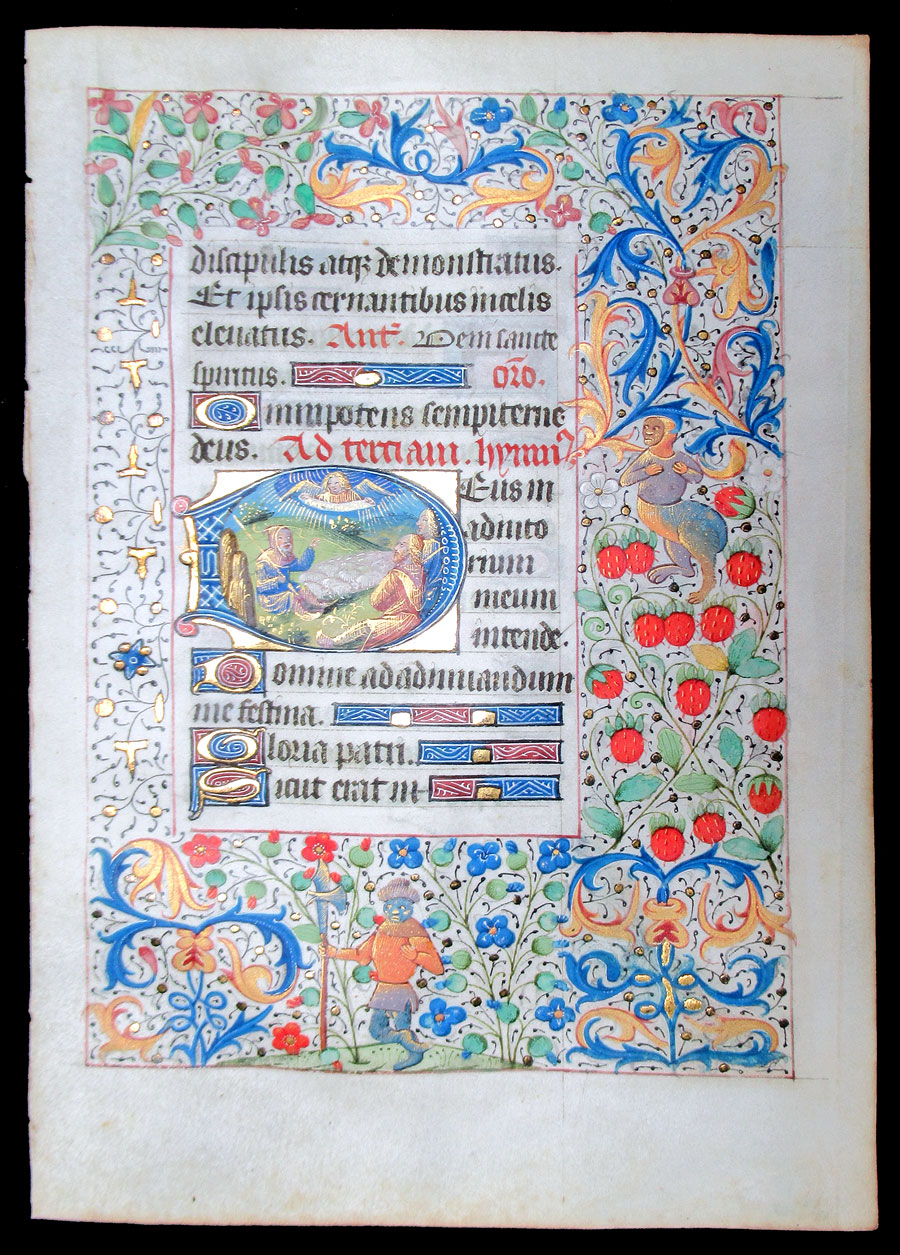 discipulis atqꝫ demonstratus.
Et ipsis cernantibus in celis
elevatus. Ant. Veni sancte
spiritus. Oro.
Omnipotens sempiterne
deus. Ad tertiam. hymnꝰ
Deus in
adiuto
rium
meum
intende.
Domine ad adiuuandum
me festina.
Gloria patri.
Sicut erat in